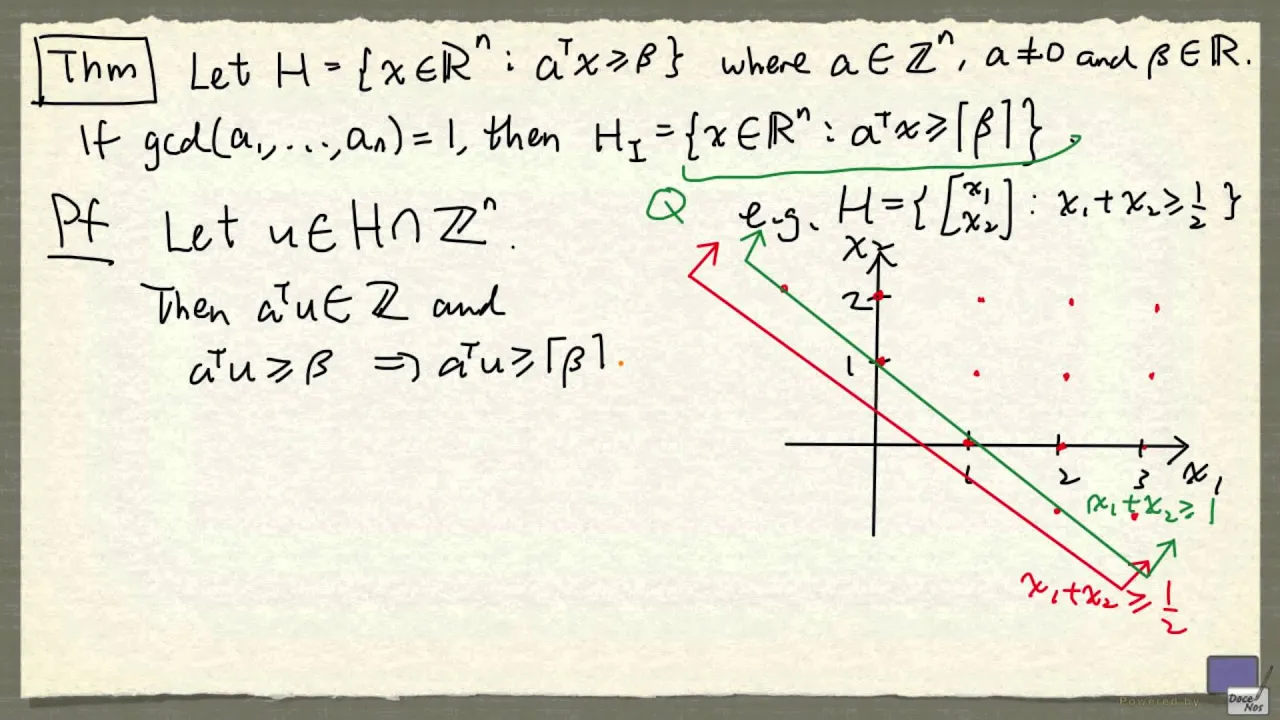 Thm Let H = {x ∈ ℝⁿ : aᵀx ≥ β} where a ∈ ℤⁿ, a ≠ 0 and β ∈ ℝ.
If gcd(a₁, ..., aₙ) = 1, then H_I = {x ∈ ℝⁿ : aᵀx ≥ ⌈β⌉}
Q
e.g. H = { [x₁ x₂] : x₁ + x₂ ≥ 1/2 }
Pf Let u ∈ H ∩ ℤⁿ.
Then aᵀu ∈ ℤ and
aᵀu ≥ β ⇒ aᵀu ≥ ⌈β⌉.
2
1
1 2 3
x₁
x₁ + x₂ ≥ 1
x₁ + x₂ ≥ 1/2
Powered by
Doce
Nos